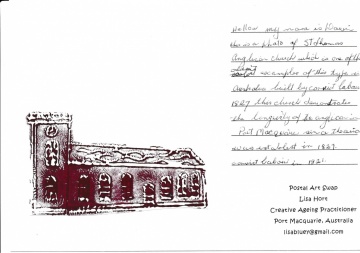 Hello my name is
this is a photo of St Thomas
Anglican church which is one of the
oldest examples of this type in
Australia built by convict labour
1827 this church demonstrates
the longevity of
Port Macquarie
was establish in 1821
convict labour in 1821
Postal Art Swap
Lisa Hort
Creative Ageing Practitioner
Port Macquarie, Australia
lisabluey@gmail.com